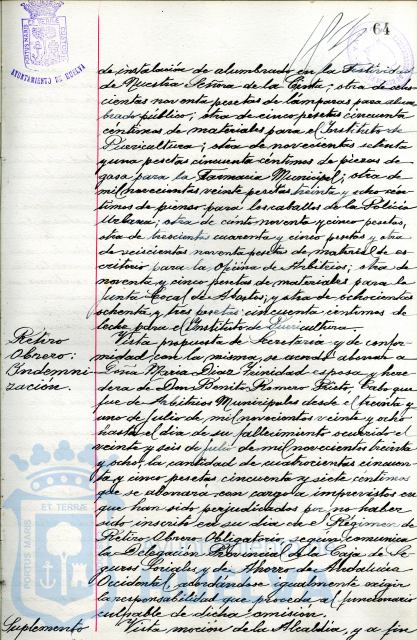 64
AYUNTAMIENTO DE HUELVA
de instalación de alumbrado en la Festividad
de Nuestra Señora de la Cinta; otra de dos-
cientas noventa pesetas de lámparas para alum-
brado público; otra de cinco pesetas cincuenta
céntimos de materiales para el Instituto de
Puericultura; otra de novecientas ochenta
y una pesetas cincuenta céntimos de piezas de
gasa para la Farmacia Municipal; otra de
mil novecientas veinte pesetas treinta y ocho cén-
timos de pienso para los caballos de la Policía
Urbana; otra de ciento noventa y cinco pesetas,
otra de trescientas cuarenta y cinco pesetas y otra
de seiscientas noventa pesetas de material de es-
critorio para la Oficina de Arbitrios; otra de
noventa y cinco pesetas de materiales para la
Junta Local de Abastos; y otra de ochocientas
ochenta y tres pesetas cincuenta céntimos de
leche para el Instituto de Puericultura.
Retiro
Obrero:
Indemni-
zación.
Vista propuesta de Secretaría y de confor-
midad con la misma, se acordó abonar a
Doña María Díaz Trinidad esposa y here-
dera de Don Benito Romero Prieto, Cabo que
fue de Arbitrios Municipales desde el treinta y
uno de Julio de mil novecientos veinte y ocho
hasta el día de su fallecimiento ocurrido el
veinte y seis de Julio de mil novecientos treinta
y ocho, la cantidad de cuatrocientas cincuen-
ta y una pesetas cincuenta y siete céntimos
que se abonará con cargo a imprevistos en
que han sido perjudicados por no haber
sido inscrito en su día en el Régimen de
Retiro Obrero Obligatorio, según comunica
la Delegación de la Caja de Se-
guros Sociales y de Ahorro de Andalucía
Occidental; acordándose igualmente exigir
la responsabilidad que proceda al funcionario
culpable de dicha omisión.
Suplemento
Vista moción de la Alcaldía, y a fin
PORTUS MARIS ET TERRÆ